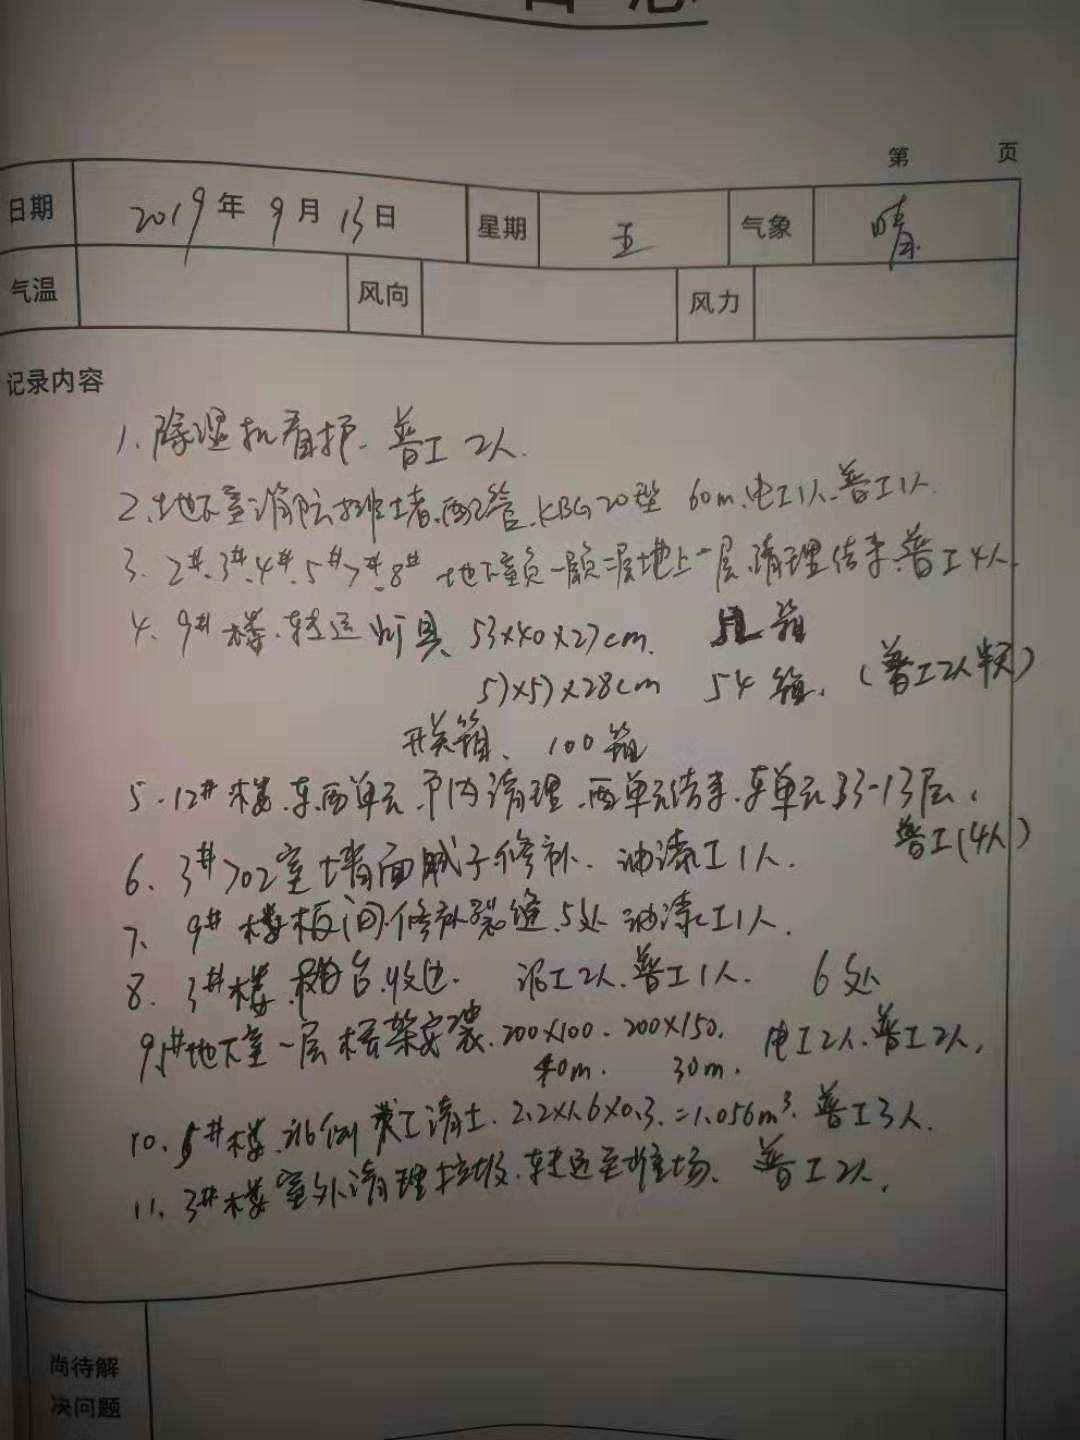 第 页
日期 2019年9月13日 星期 五 气象 晴
气温 风向 风力
记录内容
1.除湿机看护.普工2人.
2.地下室消防排堵.配管.KBG20型 60m.电工1人.普工1人.
3.2#.3#.4#.5#.7#.8#地下室负一层负二层地上一层.清理结束.普工4人.
4.9#楼.转运灯具53×40×27cm. 箱
57×57×28cm 54箱.(普工2人半天)
开关箱、100箱
5.12#楼.东西单元.户内清理.西单元结束.东单元33-13层.
普工(4人)
6、3#702室墙面腻子修补.油漆工1人.
7、9#楼板间.修补裂缝.5处油漆工1人.
8.3#楼.台.收边. 泥工2人.普工1人. 6处
9.#地下室一层桥架安装.200×100.200×150. 电工2人.普工2人.
40m. 30m.
10.5#楼.北侧人工清土.2.2×1.6×0.3.=1.056m³.普工3人.
11.3#楼室外清理垃圾.转运至堆场. 普工2人.
尚待解
决问题